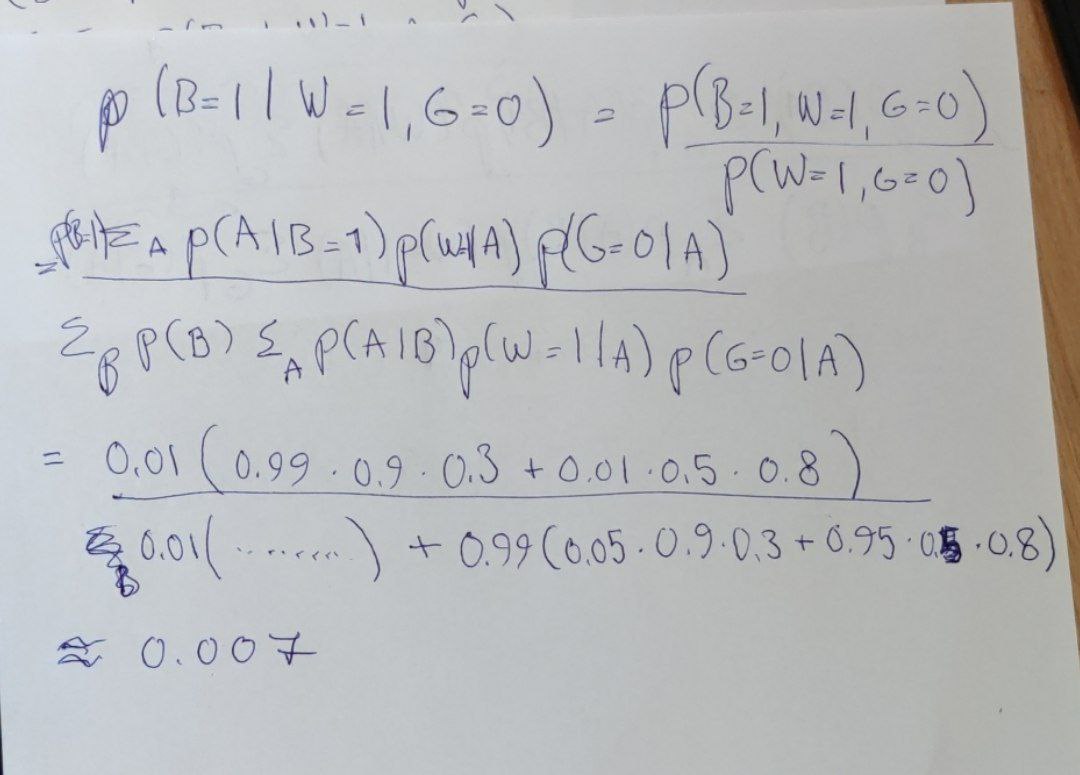 p (B=1 | W=1, G=0) = p(B=1, W=1, G=0)
p(W=1, G=0)
= p(B=1) Σ_A p(A|B=1) p(W=1|A) p(G=0|A)
Σ_B p(B) Σ_A p(A|B) p(W=1|A) p(G=0|A)
= 0.01 (0.99 · 0.9 · 0.3 + 0.01 · 0.5 · 0.8)
0.01( ........ ) + 0.99 (0.05 · 0.9 · 0.3 + 0.95 · 0.5 · 0.8)
≈ 0.007